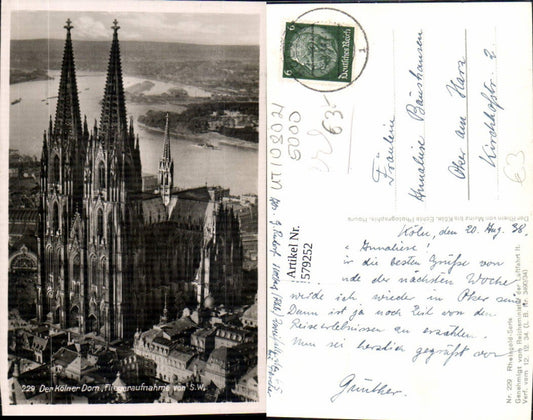 229 Der Kölner Dom, Fliegeraufnahme von S.W.
6 Deutsches Reich 6
UT102021
5000
€3.-
Artikel Nr.
579252
Fräulein
Annaliese Baushausen
Oker am Harz
Kirchhofstr. 2
€3
Köln, den 20. Aug. 38.
Annaliese!
die besten Grüße von
der nächsten Woche
werde ich wieder in Oker sein
Dann ist ja noch Zeit von den
Reiseerlebnissen zu erzählen.
Nun sei herzlich gegrüßt von
Günther.
Der Rhein von Mainz bis Köln, Echte Photographie,
Nr. 229. Rheingold-Serie
Genehmigt vom Reichsminister der Luftfahrt
Verf. vom 12. 12. 34